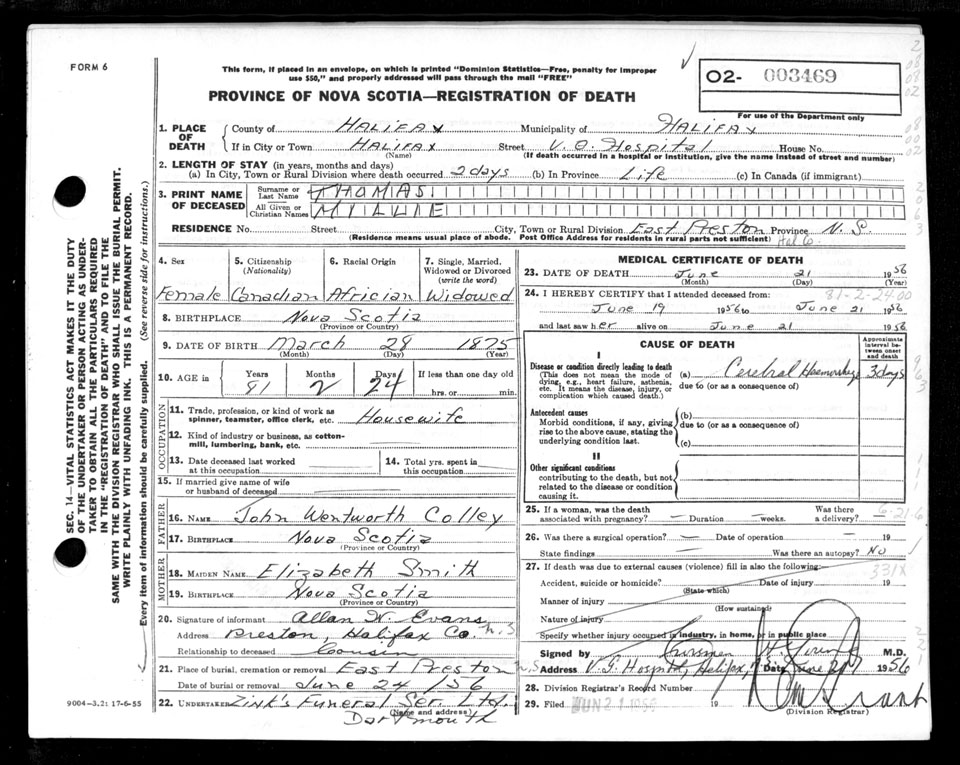 FORM 6
This form, if placed in an envelope, on which is printed "Dominion Statistics—Free, penalty for improper
use $50," and properly addressed will pass through the mail "FREE"
PROVINCE OF NOVA SCOTIA—REGISTRATION OF DEATH
02- 003469
For use of the Department only
1. PLACE OF DEATH
County of HALIFAX Municipality of HALIFAX
If in City or Town HALIFAX Street V. G. Hospital House No.
(Name) (If death occurred in a hospital or institution, give the name instead of street and number)
2. LENGTH OF STAY (in years, months and days)
(a) In City, Town or Rural Division where death occurred 2 days (b) In Province Life (c) In Canada (if immigrant)
3. PRINT NAME OF DECEASED
Surname or Last Name THOMAS
All Given or Christian Names MILLIE
RESIDENCE No. Street City, Town or Rural Division East Preston Province N. S.
(Residence means usual place of abode. Post Office Address for residents in rural parts not sufficient) Hal Co.
4. Sex 5. Citizenship (Nationality) 6. Racial Origin 7. Single, Married, Widowed or Divorced (write the word)
Female Canadian Africian Widowed
8. BIRTHPLACE Nova Scotia
(Province or Country)
9. DATE OF BIRTH March 28 1875
(Month) (Day) (Year)
10. AGE in Years Months Days If less than one day old
81 2 24 hrs. or min.
OCCUPATION
11. Trade, profession, or kind of work as
spinner, teamster, office clerk, etc. Housewife
12. Kind of industry or business, as cotton-
mill, lumbering, bank, etc.
13. Date deceased last worked at this occupation 14. Total yrs. spent in this occupation
15. If married give name of wife
or husband of deceased
FATHER
16. NAME John Wentworth Colley
17. BIRTHPLACE Nova Scotia
(Province or Country)
MOTHER
18. MAIDEN NAME Elizabeth Smith
19. BIRTHPLACE Nova Scotia
(Province or Country)
20. Signature of informant Allan W. Evans
Address Preston, Halifax Co. N. S.
Relationship to deceased Cousin
21. Place of burial, cremation or removal East Preston N. S.
Date of burial or removal June 24 / 56
22. UNDERTAKER Zink's Funeral Ser. Ltd.
(Name and address)
Dartmouth
9004—3.2: 17-6-55
MEDICAL CERTIFICATE OF DEATH
23. DATE OF DEATH June 21 1956
(Month) (Day) (Year)
81-2-24 00
24. I HEREBY CERTIFY that I attended deceased from:
June 19 1956 to June 21 1956
and last saw her alive on June 21 1956
CAUSE OF DEATH
Approximate interval between onset and death
I
Disease or condition directly leading to death
(This does not mean the mode of
dying, e.g., heart failure, asthenia,
etc. It means the disease, injury, or
complication which caused death.)
(a) Cerebral Haemorrhage 3 days
due to (or as a consequence of)
Antecedent causes
Morbid conditions, if any, giving
rise to the above cause, stating the
underlying condition last.
(b)
due to (or as a consequence of)
(c)
II
Other significant conditions
contributing to the death, but not
related to the disease or condition
causing it.
25. If a woman, was the death Was there
associated with pregnancy? — Duration — weeks. a delivery?
6-21-6
26. Was there a surgical operation? — Date of operation — 19
State findings Was there an autopsy? No
27. If death was due to external causes (violence) fill in also the following:
331X
Accident, suicide or homicide? Date of injury 19
(State which)
Manner of injury
(How sustained)
Nature of injury
Specify whether injury occurred in industry, in home, or in public place
Signed by M.D.
Address V. G. Hospital, Halifax, Date June 21 1956
28. Division Registrar's Record Number
29. Filed JUN 21 1956 19
(Division Registrar)
SEC. 14—VITAL STATISTICS ACT MAKES IT THE DUTY
OF THE UNDERTAKER OR PERSON ACTING AS UNDER-
TAKER TO OBTAIN ALL THE PARTICULARS REQUIRED
IN THE "REGISTRATION OF DEATH" AND TO FILE THE
SAME WITH THE DIVISION REGISTRAR WHO SHALL ISSUE THE BURIAL PERMIT.
WRITE PLAINLY WITH UNFADING INK. THIS IS A PERMANENT RECORD.
Every item of information should be carefully supplied. (See reverse side for instructions.)